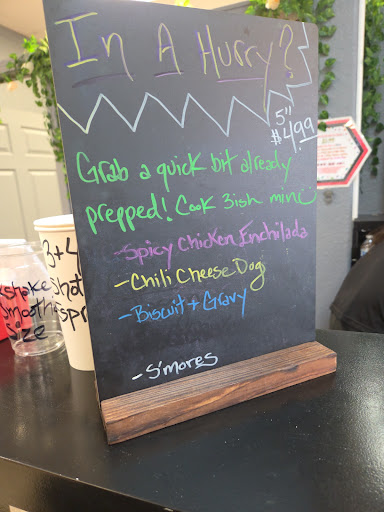 In A Hurry?
5"
$4.99
Grab a quick bit already
prepped! Cook 3ish min
-Spicy Chicken Enchilada
-Chili Cheese Dog
-Biscuit + Gravy
-S'mores
3+4
shot
spr
shake
Smooth
Size